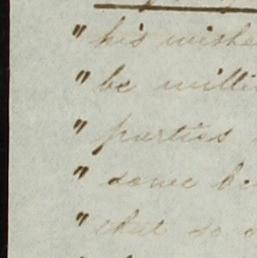 " his wishe
" be willi
" parties
" some be
" that so
"